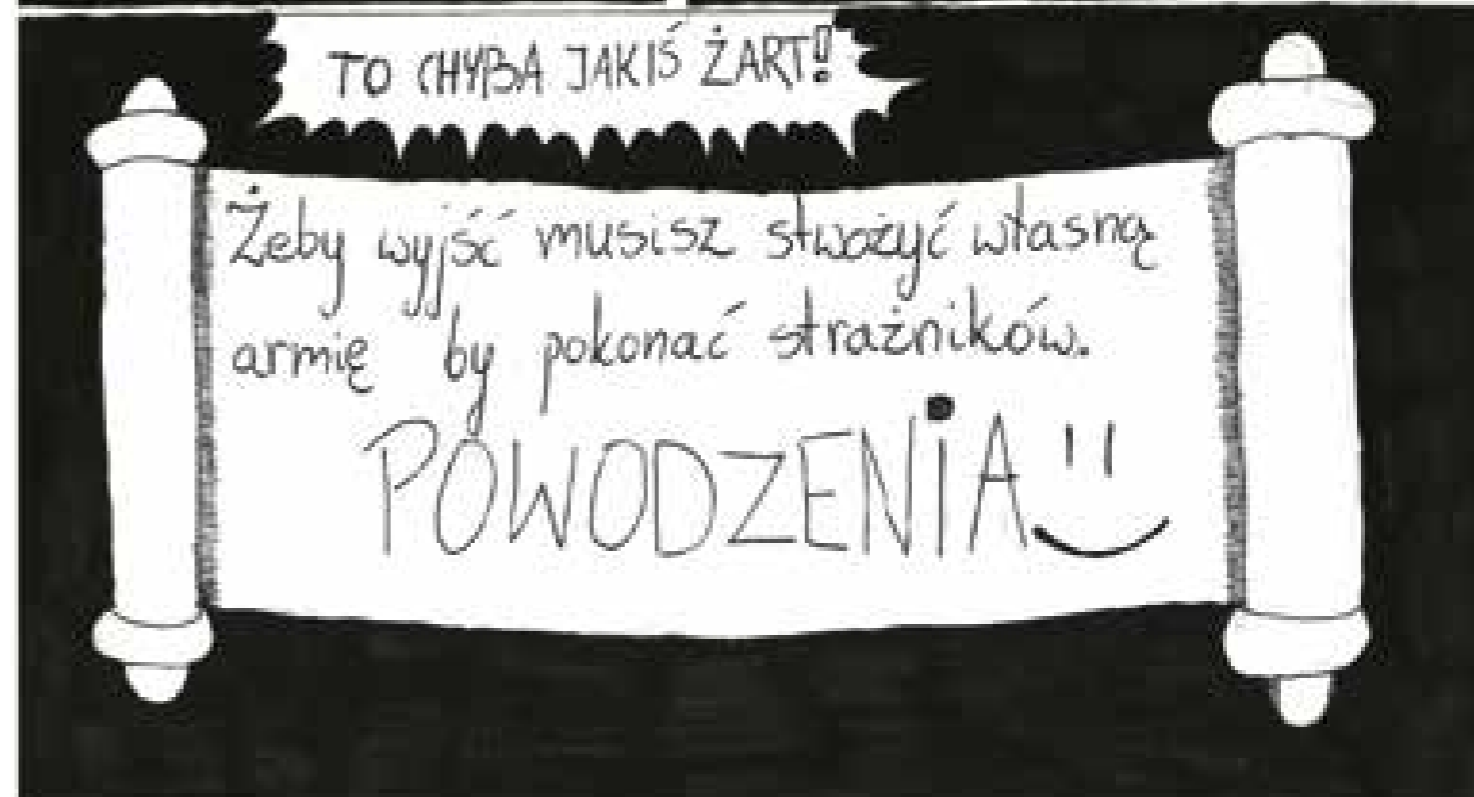 TO CHYBA JAKIŚ ŻART!
Żeby wyjść musisz stwożyć własną
armię by pokonać strażników.
POWODZENiA